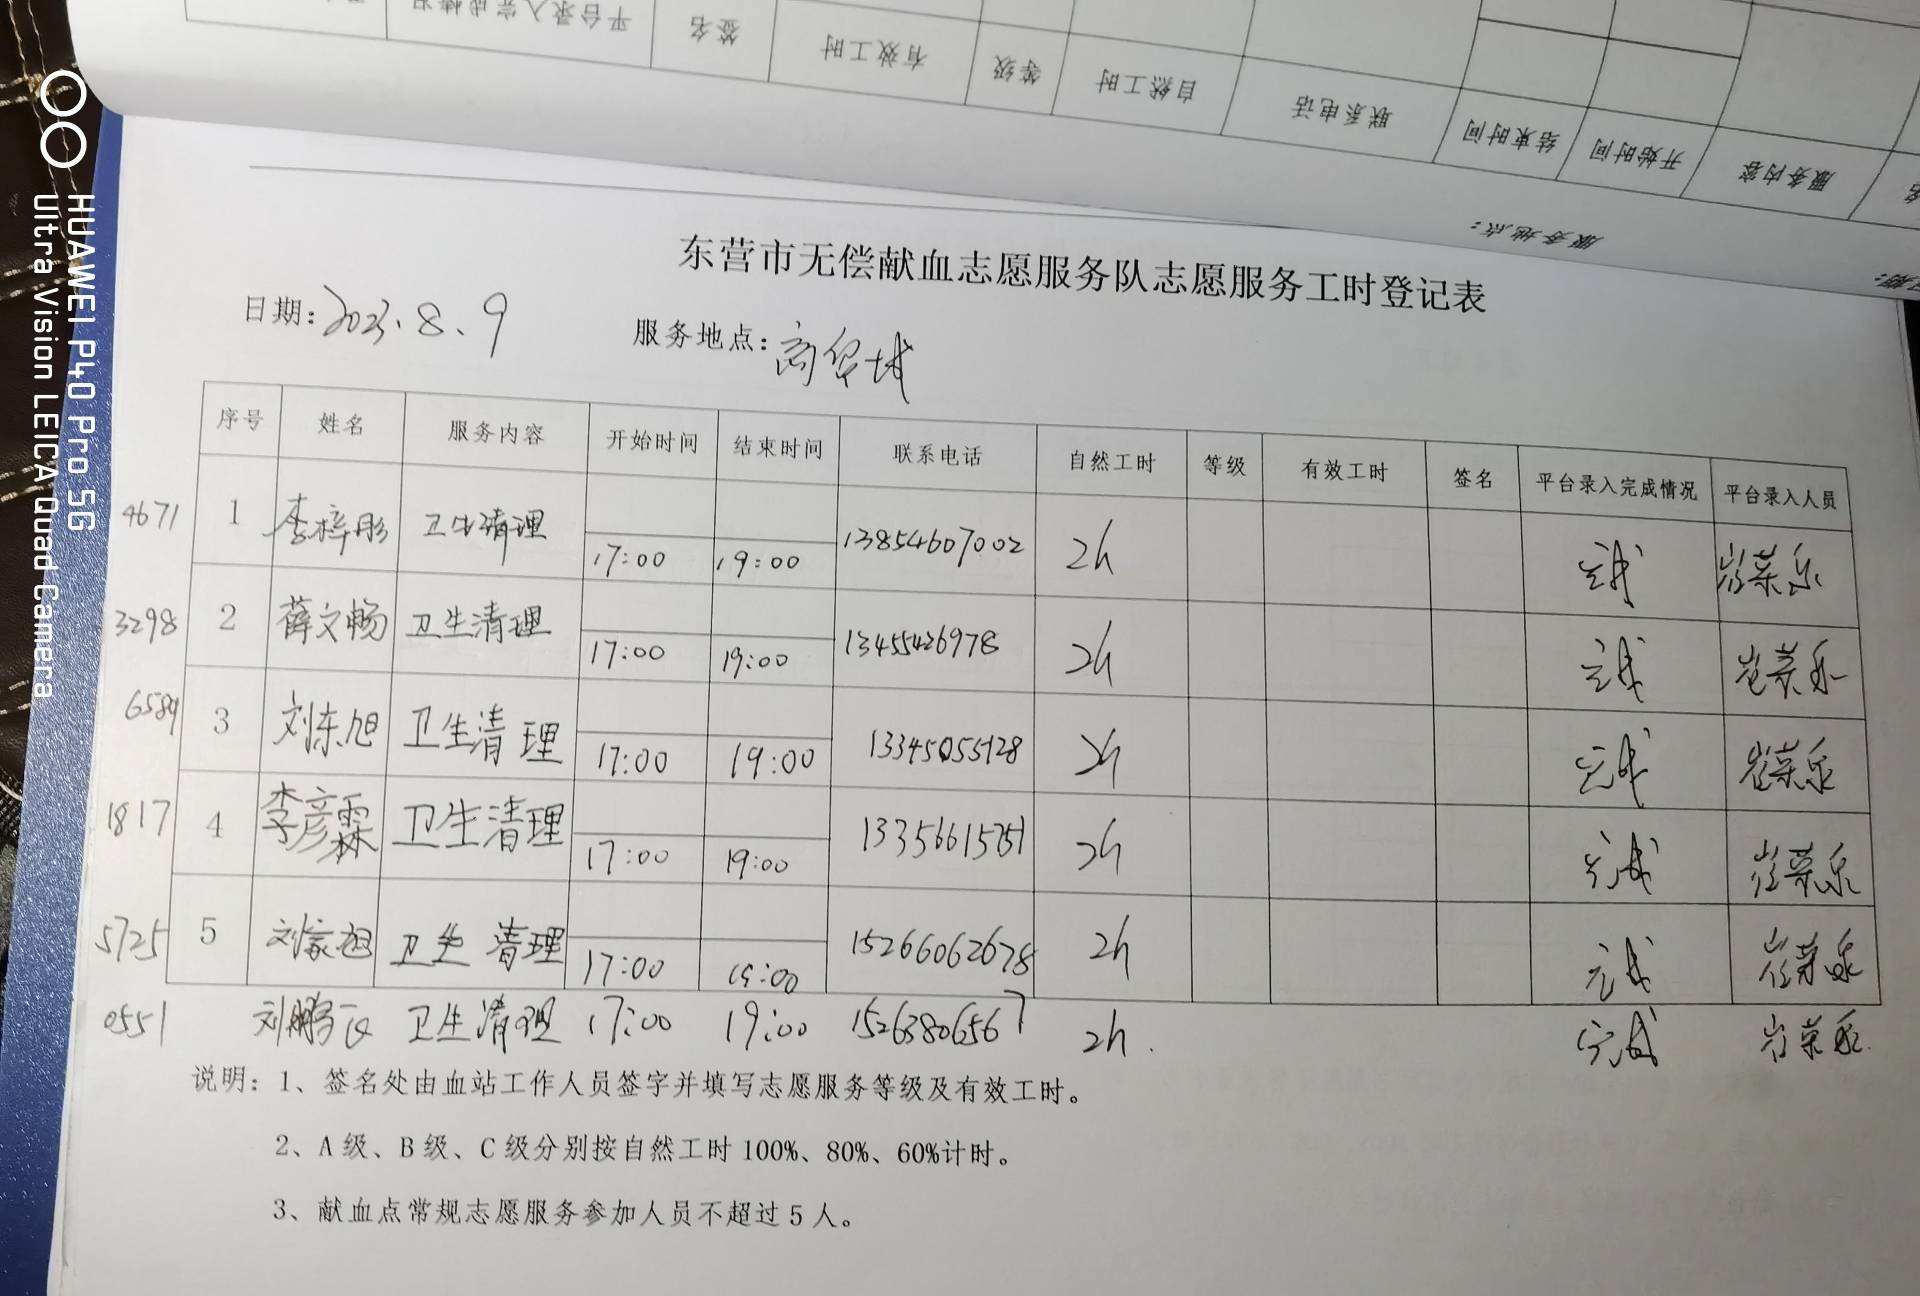 平台录入完成情况 签名 有效工时 等级 自然工时 联系电话 结束时间 开始时间 服务内容
服务地点：
日期：
HUAWEI P40 Pro 5G
Ultra Vision LEICA Quad Camera
东营市无偿献血志愿服务队志愿服务工时登记表
日期：2023.8.9 服务地点：商贸城
序号 姓名 服务内容 开始时间 结束时间 联系电话 自然工时 等级 有效工时 签名 平台录入完成情况 平台录入人员
4671 1 李梓彤 卫生清理 17:00 19:00 13854607002 2h 完成
3298 2 薛文畅 卫生清理 17:00 19:00 13455426978 2h 完成
6589 3 刘东旭 卫生清理 17:00 19:00 13345055128 2h 完成
1817 4 李彦霖 卫生清理 17:00 19:00 2h 完成
5725 5 卫生清理 17:00 19:00 15266062678 2h 完成
0551 卫生清理 17:00 19:00 15263806567 2h. 完成
说明：1、签名处由血站工作人员签字并填写志愿服务等级及有效工时。
2、A级、B级、C级分别按自然工时100%、80%、60%计时。
3、献血点常规志愿服务参加人员不超过5人。